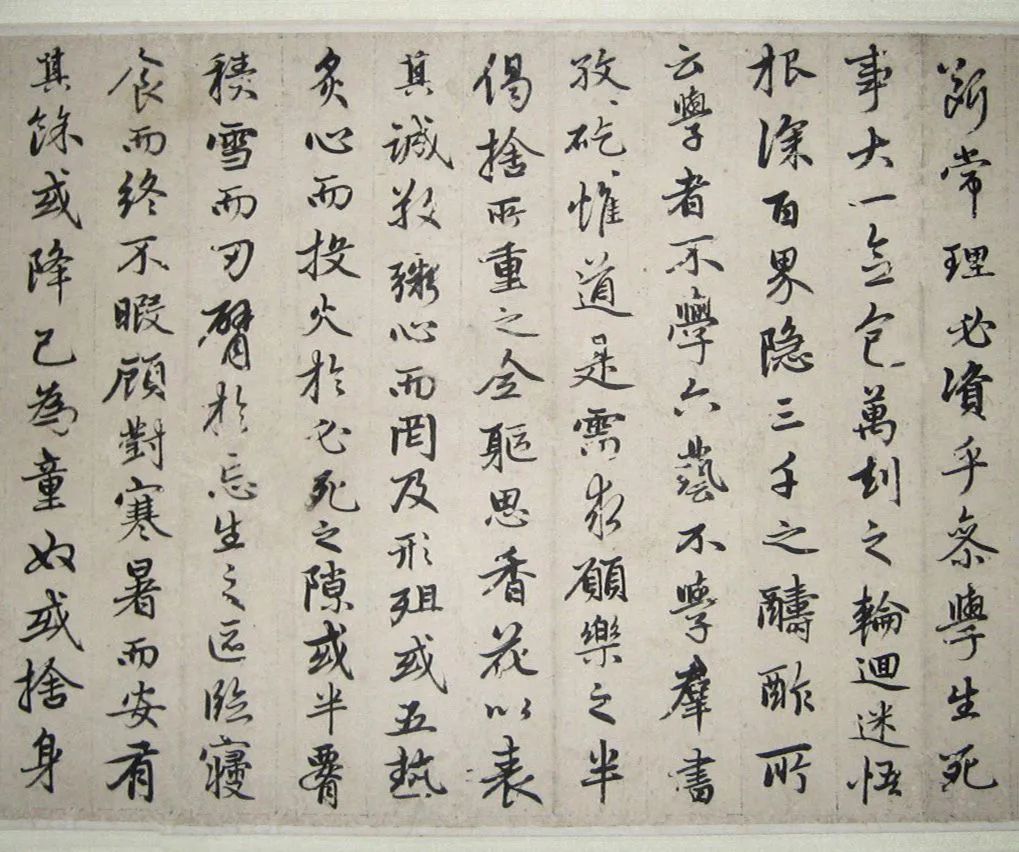 斷常理必資乎參學生死
事大一念包萬劫之輪迴迷悟
根深百界隱三千之醻酢所
云學者不學六藝不學羣書
孜〻矻〻惟道是需求願樂之半
偈捨所重之全軀思香花以表
其誠敬粥心而罔及形殂或五熱
炙心而投火於必死之隙或半腰
積雪而刃臂於忘生之區臨寢
食而終不暇顧對寒暑而安有
其餘或降己為童奴或捨身